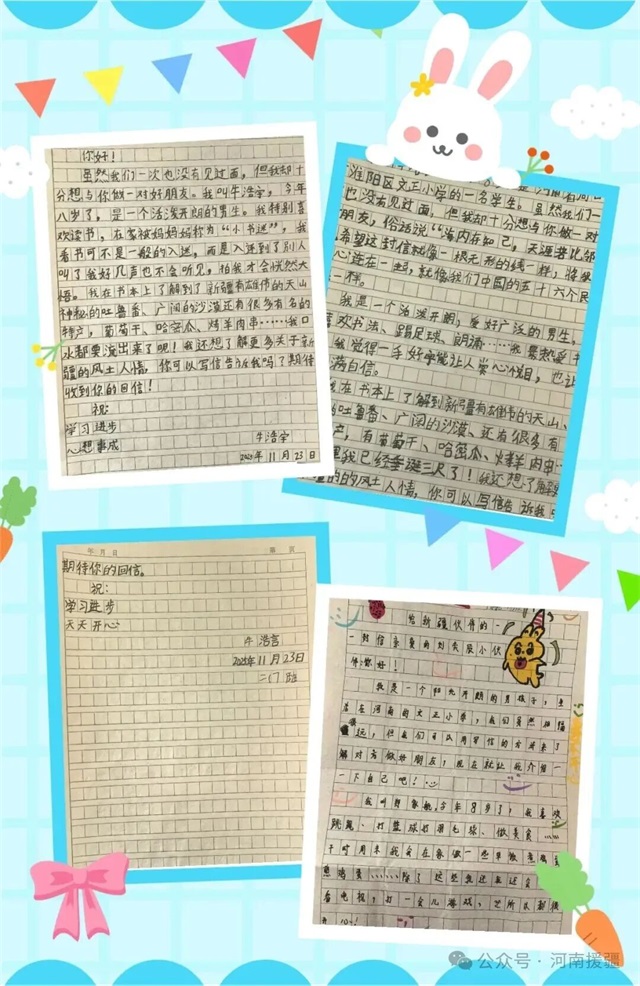 你好！
虽然我们一次也没有见过面，但我却十
分想与你做一对好朋友。我叫牛浩宇，今年
八岁了，是一个活泼开朗的男生。我特别喜
欢读书，在家被妈妈称为“小书迷”，我
看书可不是一般的入迷，而是入迷到了别人
叫了我好几声也不会听见，拍我才会恍然大
悟。我在书本上了解到了新疆有雄伟的天山
神秘的吐鲁番、广阔的沙漠还有很多有名的
特产，葡萄干、哈密瓜、烤羊肉串……我口
水都要流出来了呢！我还想了解更多关于新
疆的风土人情，你可以写信告诉我吗？期待
收到你的回信！
祝：
学习进步
心想事成
牛浩宇
2023年11月23日
淮阳区文正小学的一名学生。虽然我们一
也没有见过面，但我却十分想与你做一对
朋友，俗话说“海内存知己，天涯若比邻
希望这封信就像一根无形的线一样，将我
心连在一起，就像我们中国的五十六个民
一样。
我是一个活泼开朗，爱好广泛的男生。
喜欢书法、踢足球、朗诵……我最热爱
我觉得一手好字能让人赏心悦目，也让
满自信。
我在书本上了解到新疆有雄伟的天山、
的吐鲁番、广阔的沙漠、还有很多有
产，有葡萄干、哈密瓜、烤羊肉串
里我已经垂涎三尺了！我还想了解
的风土人情，你可以写信告诉我
年 月 日
期待你的回信。
祝：
学习进步
天天开心
牛浩言
2023年11月23日
二(7)班
给新疆伙伴的一
封信亲爱的刘
伴：你好！
我是一个阳光开朗的男孩子，生
活在河南的文正小学，我们虽然相隔
遥远，但我们可以用写信的方式来了
解对方做好朋友，现在就让我介绍一
下自己吧！
我叫
今年8岁了，我喜欢
跳绳、打篮球打羽毛球、做美食……
平时周末我会在家做一些
……除了这些我还
看电视，打一会儿游戏，
公众号·河南援疆